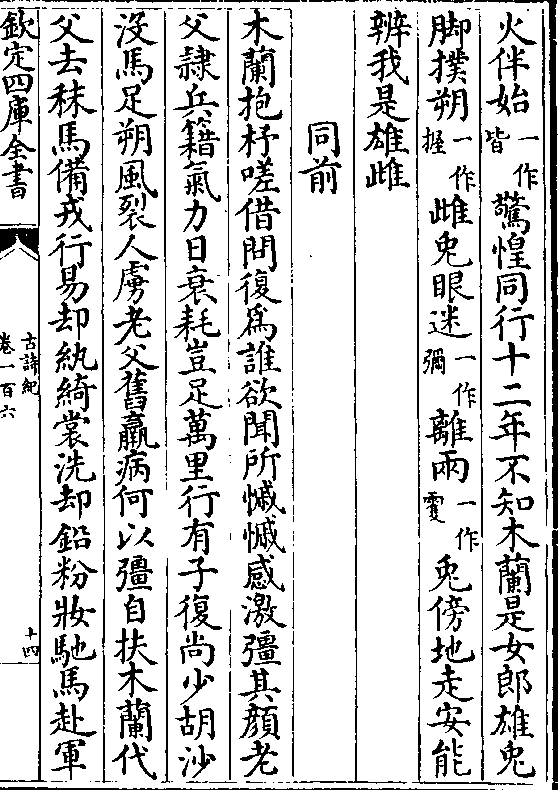 火伴始一作皆驚惶同行十二年不知木蘭是女郎雄兎
脚撲朔一作握雌兎眼迷一作彌離兩一作䨇兎傍地走安能
辨我是雄雌
同前
木蘭抱杼嗟借問復爲誰欲聞所慽慽感激彊其顔老
父隷兵籍氣力日衰耗豈足萬里行有子復尚少胡沙
沒馬足朔風裂人膚老父舊羸病何以彊自扶木蘭代
父去秣馬備戎行易却紈綺裳洗却鉛粉妝馳馬赴軍
欽定四庫全書
古詩紀
卷一百六
十四